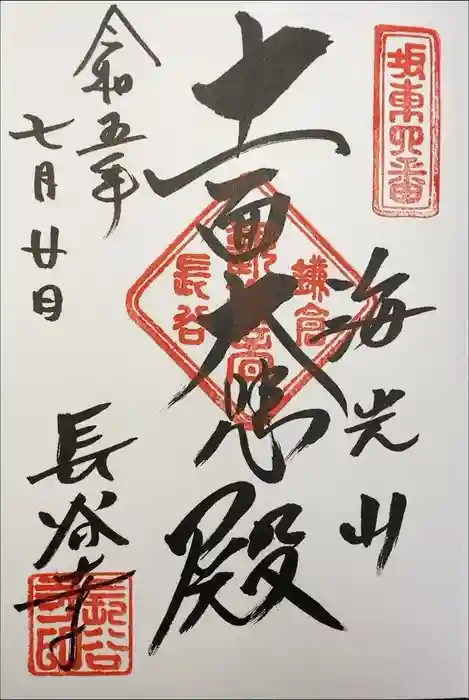 坂東四番
海光山
十一面大悲殿
鎌倉
長谷
令和五年
七月廿日
長谷寺